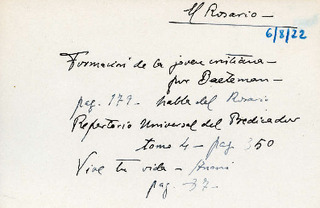 El Rosario -
6/8/22
Formación de la joven cristiana -
por Baeteman -
pag. 179 - habla del Rosario
Repertorio Universal del Predicador
tomo 4 - pag. 350
Vive tu vida -
pag. 37 -